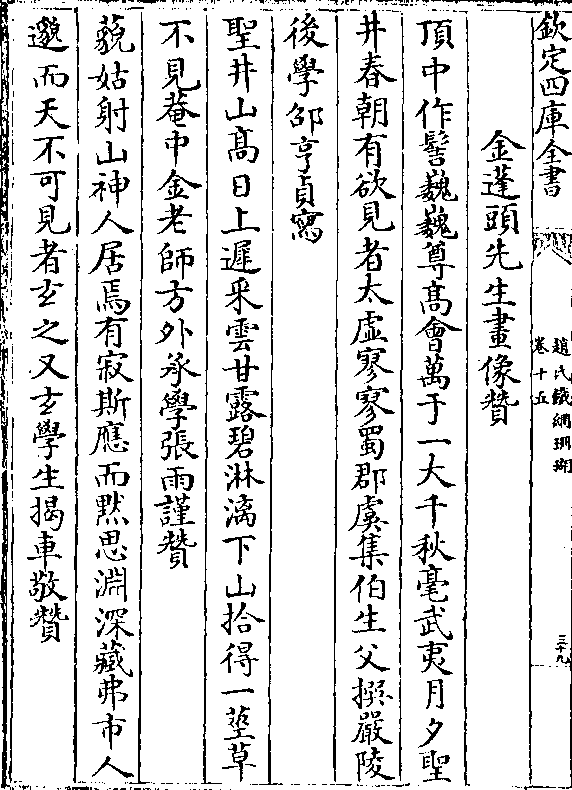 欽定四庫全書
趙氏鐵網珊瑚
卷十五
三十九
金蓬頭先生畫像贊
頂中作髻巍巍尊髙會萬于一大千秋毫武夷月夕聖
井春朝有欲見者太虛寥寥蜀郡虞集伯生父撰嚴陵
後學邵亨貞寫
聖井山髙日上遲采雲甘露碧淋漓下山拾得一莖草
不見菴中金老師方外永學張雨謹贊
藐姑射山神人居焉有寂斯應而黙思淵深藏弗市人
邈而天不可見者玄之又玄學生揭車敬贊